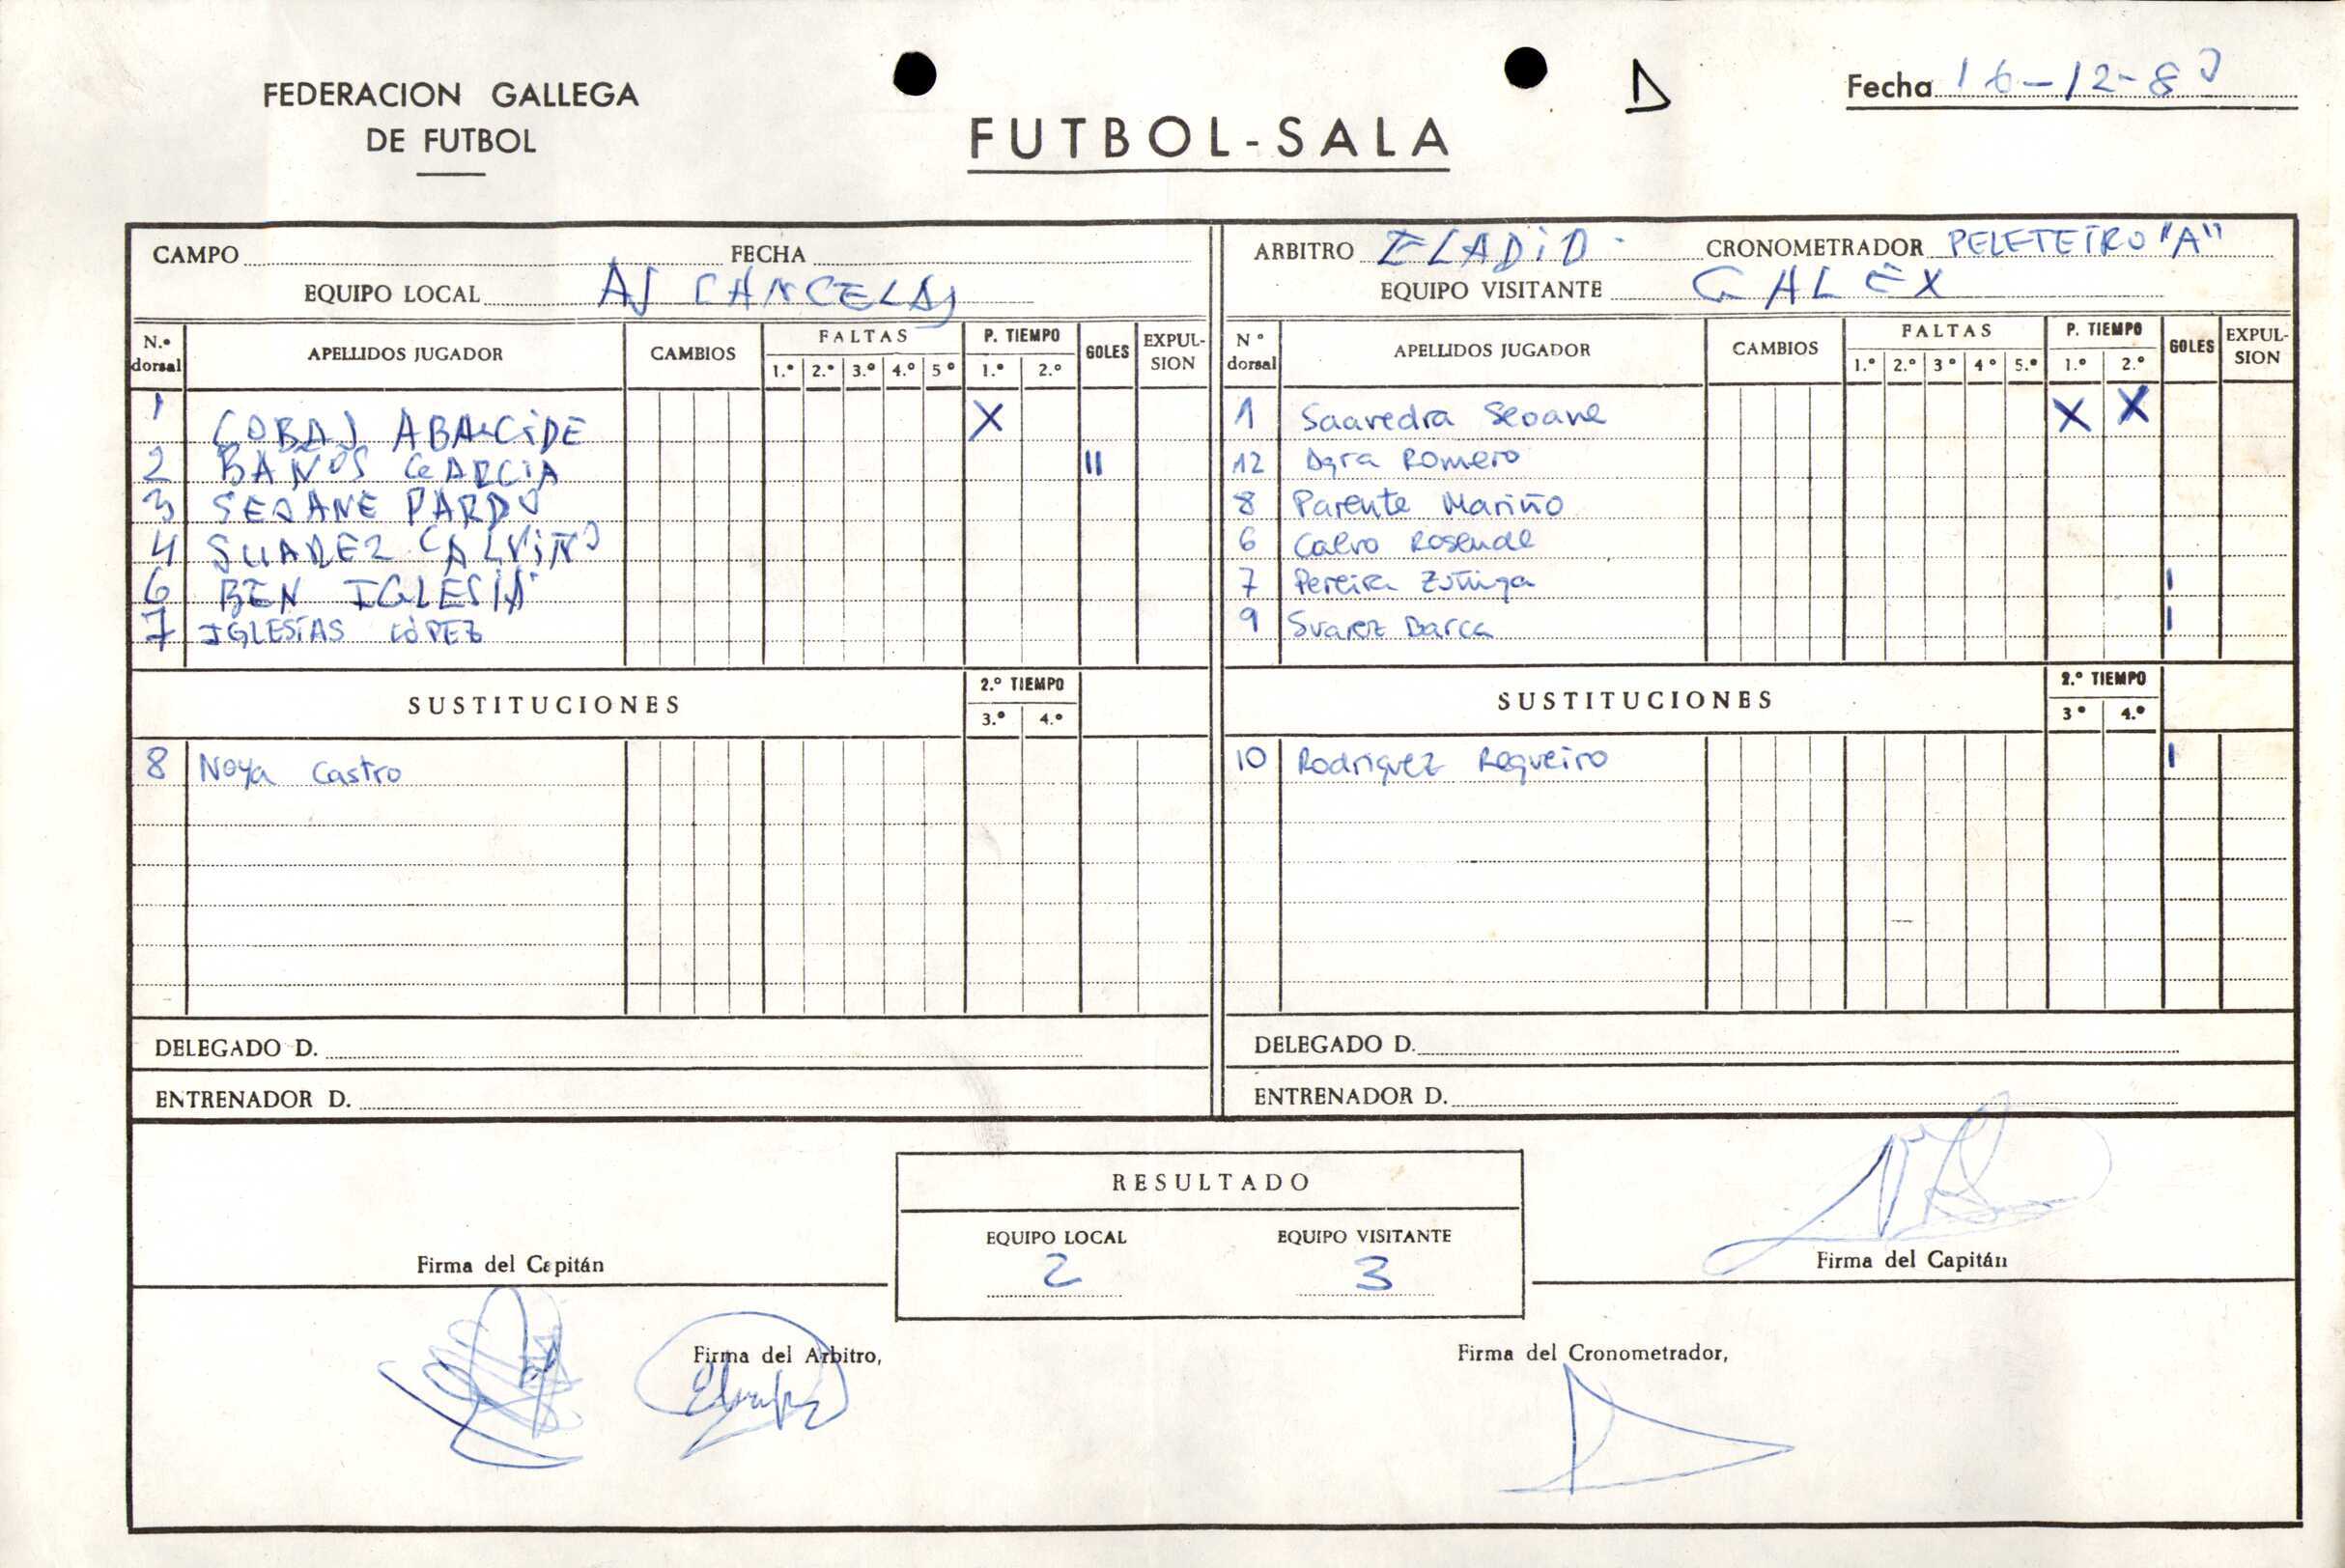 FEDERACION GALLEGA
DE FUTBOL
FUTBOL-SALA
Fecha 16-12-8
CAMPO FECHA
EQUIPO LOCAL AS CANCELAS
ARBITRO ELADIO CRONOMETRADOR PELETEIRO "A"
EQUIPO VISITANTE GALEX
N.º dorsal APELLIDOS JUGADOR CAMBIOS FALTAS 1.º 2.º 3.º 4.º 5º P. TIEMPO 1.º 2.º GOLES EXPULSION
1 COBAS ABALCIDE X
2 BAÑOS GARCIA II
3 SEOANE PARDO
4 SUAREZ CALVIÑO
6 BEN IGLESIAS
7 IGLESIAS LÓPEZ
SUSTITUCIONES 2.º TIEMPO 3.º 4.º
8 Noya Castro
DELEGADO D.
ENTRENADOR D.
Nº dorsal APELLIDOS JUGADOR CAMBIOS FALTAS 1.º 2.º 3º 4º 5.º P. TIEMPO 1.º 2.º GOLES EXPULSION
1 Saavedra Seoane X X
12 Agra Romero
8 Parente Mariño
6 Calvo Rosende
7 Pereira Zúñiga I
9 Suarez Barca I
SUSTITUCIONES 2.º TIEMPO 3º 4.º
10 Rodriguez Regueiro I
DELEGADO D.
ENTRENADOR D.
RESULTADO
EQUIPO LOCAL EQUIPO VISITANTE
2 3
Firma del Capitán
Firma del Capitán
Firma del Arbitro,
Firma del Cronometrador,